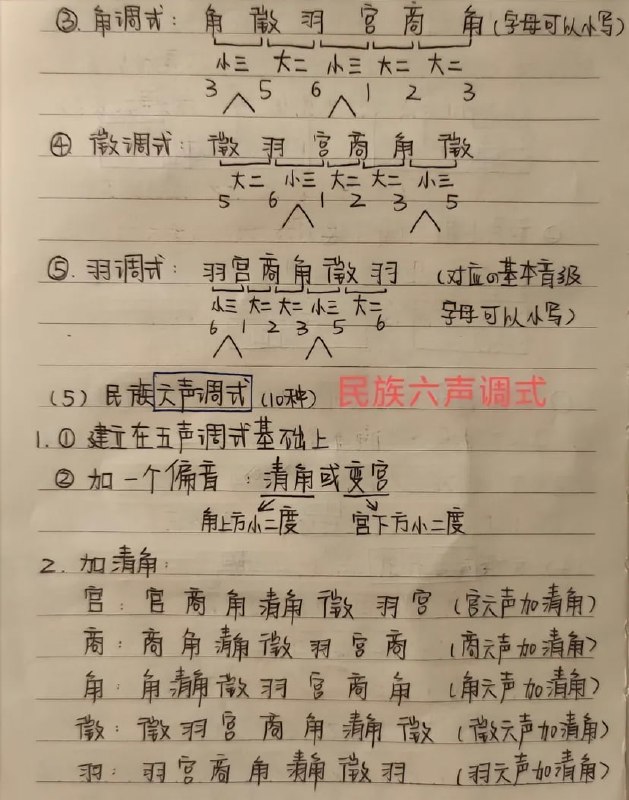 ③. 角调式: 角 徵 羽 宫 商 角 (字母可以小写)
小三 大二 小三 大二 大二
3 5 6 1 2 3
④ 徵调式: 徵 羽 宫 商 角 徵
大二 小三 大二 大二 小三
5 6 1 2 3 5
⑤. 羽调式: 羽 宫 商 角 徵 羽 (对应の基本音级
小三 大二 大二 小三 大二 字母可以小写)
6 1 2 3 5 6
(5) 民族六声调式 (10种) 民族六声调式
1. ① 建立在五声调式基础上
② 加一个偏音: 清角或变宫
角上方小二度 宫下方小二度
2. 加清角:
宫: 宫 商 角 清角 徵 羽 宫 (宫六声加清角)
商: 商 角 清角 徵 羽 宫 商 (商六声加清角)
角: 角 清角 徵 羽 宫 商 角 (角六声加清角)
徵: 徵 羽 宫 商 角 清角 徵 (徵六声加清角)
羽: 羽 宫 商 角 清角 徵 羽 (羽六声加清角)